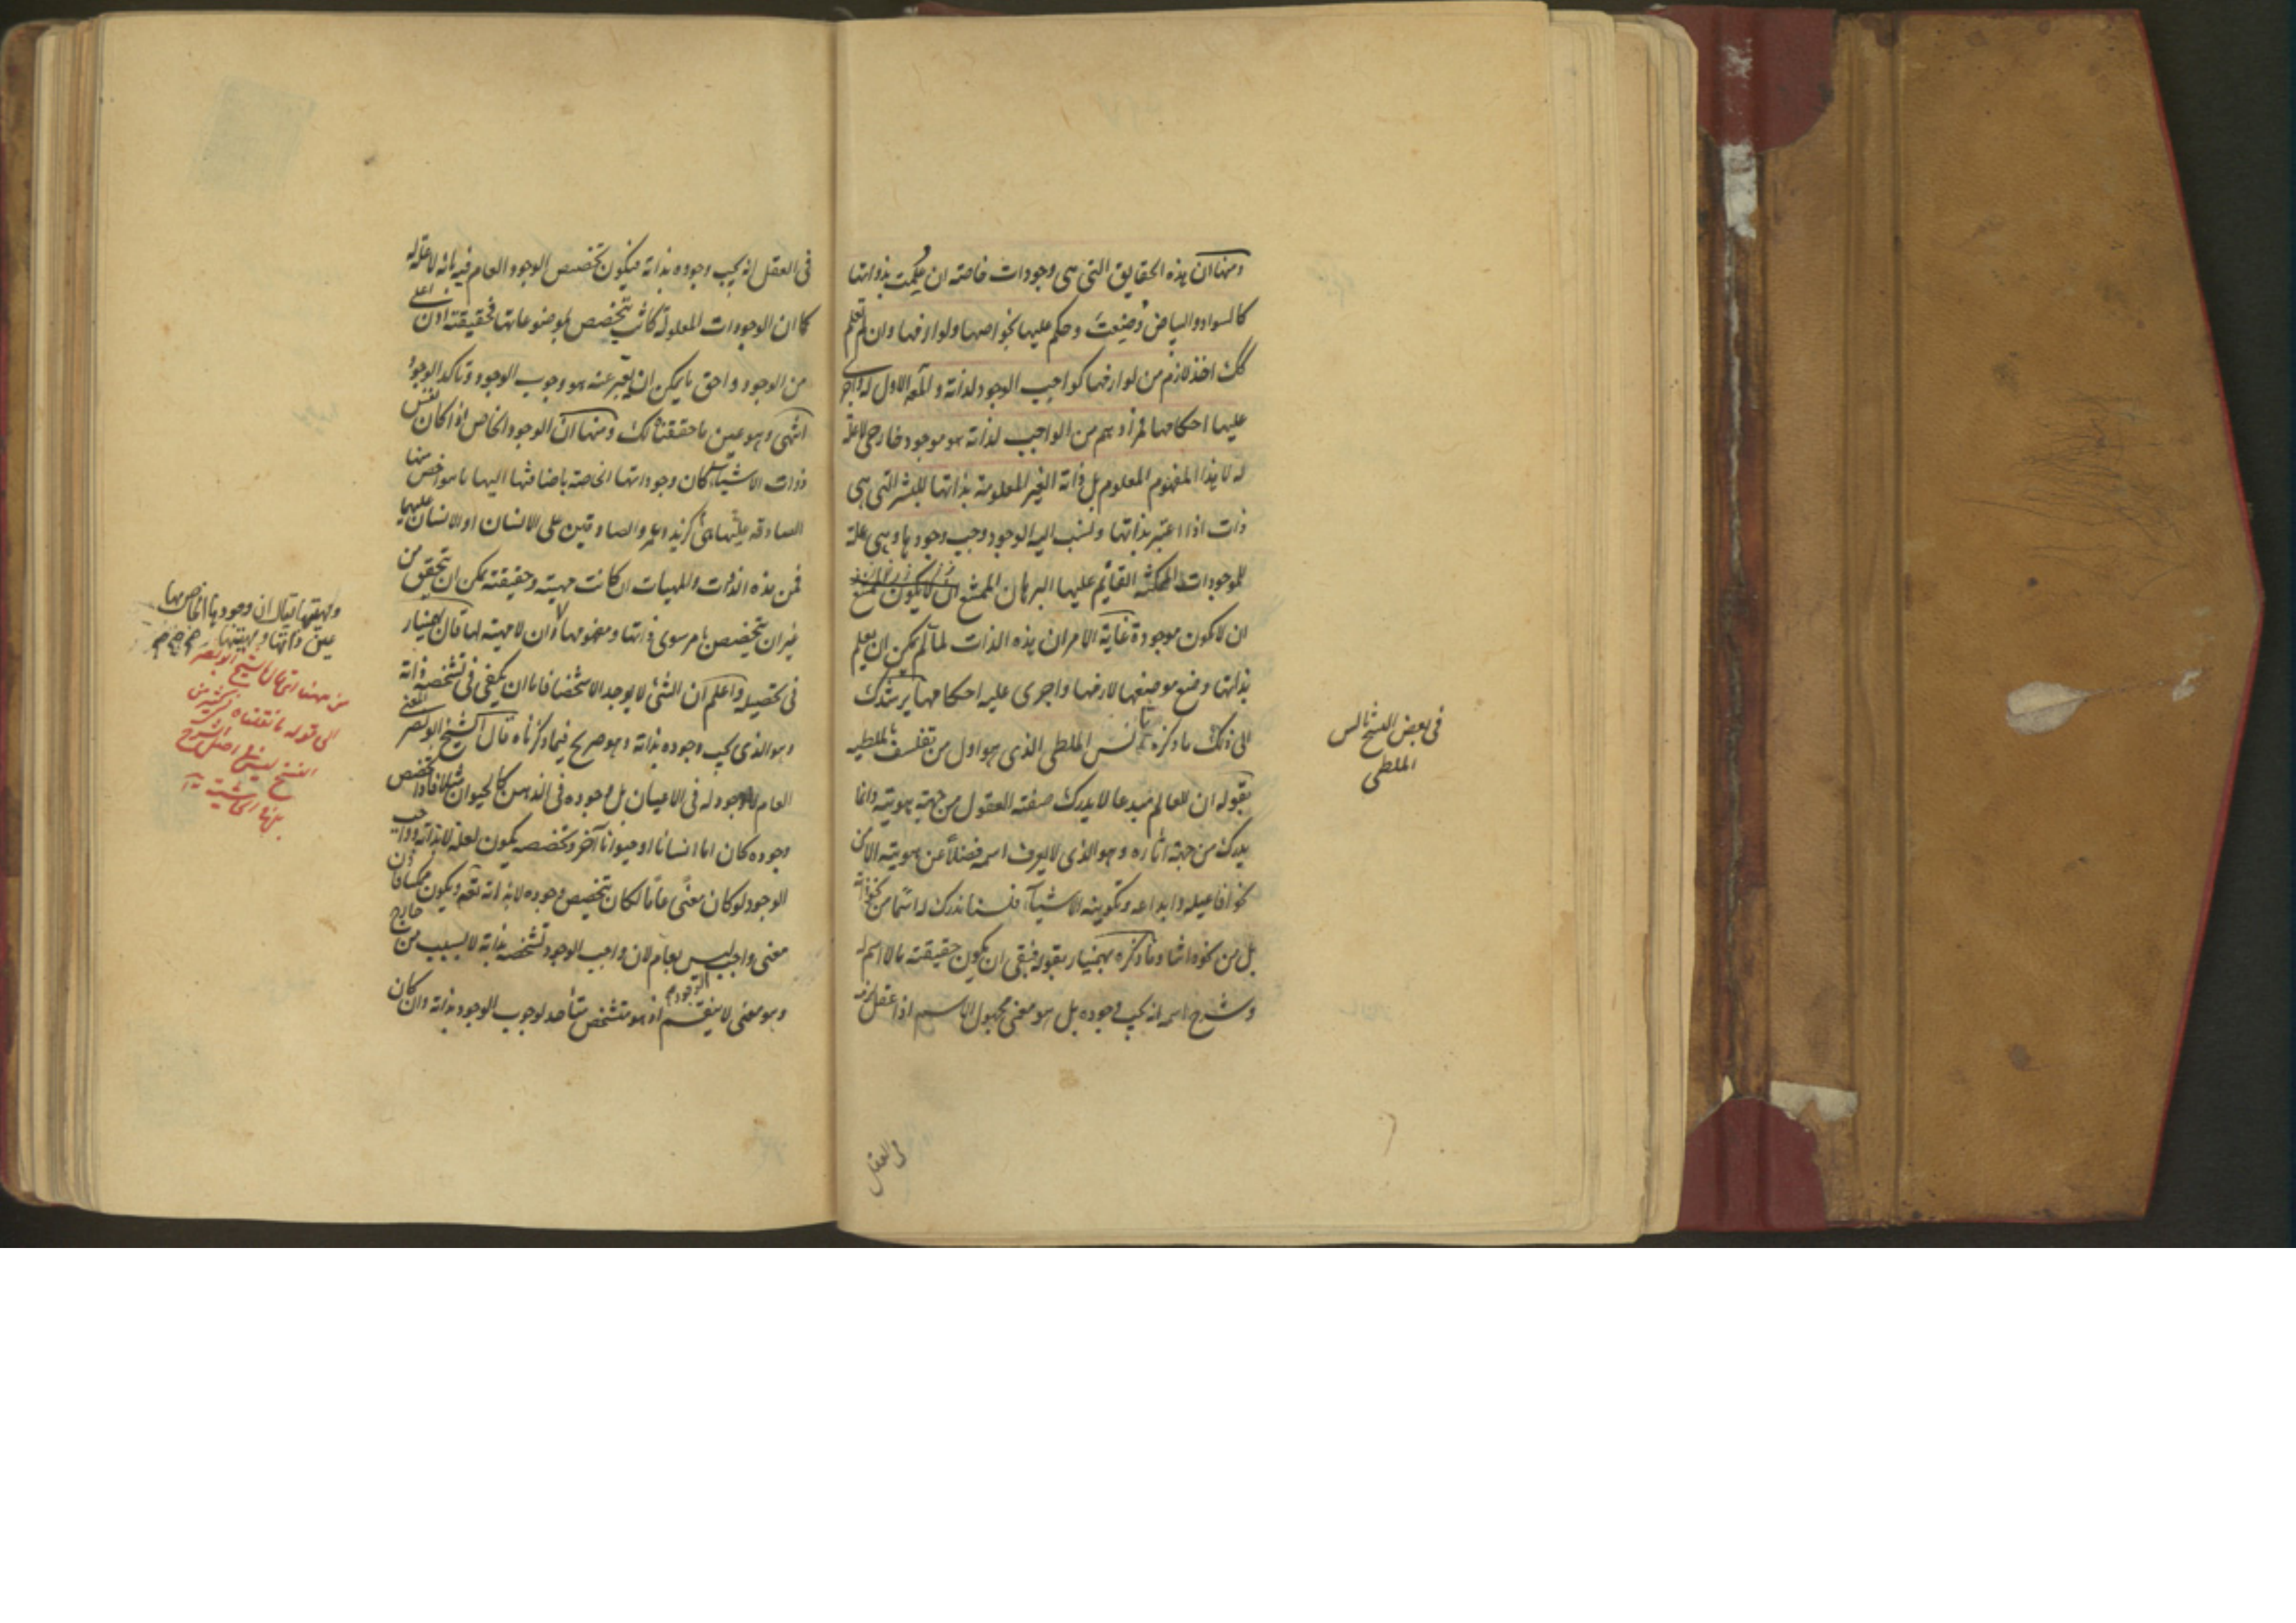 ومنها ان هذه الحقايق التى هى وجودات خاصة ان علمت بذواتها
كالسواد والبياض وضعت وحكم عليها بخواصها ولوازمها وان لم تعلم
كك اخذ لازم من لوازمها كواجب الوجود لذاته والله الاول له واجرى
عليها احكامها فمرادهم من الواجب لذاته هو موجود خارجى لا علة
له لا هذا المفهوم المعلوم بل ذاته الغير المعلومة بذاتها للبشر التى هى
ذات اذا اعتبر بذاتها ونسب اليه الوجود وجب وجودها وهى علة
للموجودات الممكنة القايم عليها البرهان الممتنع
ان لا يكون موجودة غاية الامر ان هذه الذات لما لم يكن ان يعلم
بذاتها وضع موضعها لازمها واجرى عليه احكامها يرشدك
الى ذلك ما ذكره ثالس الملطى الذى هو اول من تفلسف بالملطيه
بقوله ان للعالم مبدعا لا يدرك صفته العقول من جهة هويته وانما
يدرك من جهة اثاره وهو الذى لا يعرف اسمه فضلاً عن هويته الا من
نحو افاعيله وابداعه وتكوينه الاشياء فلسنا ندرك له اسما من نحو ذاته
بل من نحو ذاتنا وما ذكره بهمنيار بقوله فبقى ان يكون حقيقته مما لا اسم له
وشرح اسمه انه يجب وجوده بل هو معنى مجهول الاسم اذا عقل لزمه
فى العقل
فى بعض النسخ ثالس
الملطى
فى العقل انه يجب وجوده بذاته فيكون تخصص الوجود العام فيه بانه لا علة له
كما ان الوجودات المعلولة كانت يتخصص بموضوعاتها فحقيقته اذن اعلى
من الوجود واحق ما يمكن ان يعبر عنه هو وجوب الوجود وتاكد الوجود
انتهى وهو عين ما حققنا لك ومنها ان الوجود الخاص اذا كان نفس
ذوات الاشياء كان وجوداتها الخاصة باضافتها اليها ما هو اخص منها
الصادقه عليها كزيد وعمرو الصادقين على الانسان او الانسان عليهما
فمن هذه الذوات والمهيات ان كانت مهيته وحقيقته يمكن ان يتحقق من
غير ان يتخصص بامر سوى ذاتها ومفهومها لا وان لا مهية لها قال بهمنيار
فى تحصيله واعلم ان الشئ لا يوجد الا متشخصا فاما ان يكفى فى تشخصه ذاته
وهو الذى يجب وجوده بذاته وهو صريح فيما ذكرناه قال الشيخ ابو نصر المعنى
العام لا وجود له فى الاعيان بل وجوده فى الذهن كالحيوان مثلا فاذا تخصص
وجوده كان اما انسانا او حيوانا آخر وتخصصه يكون لعلة لا بذاته وواجب
الوجود لو كان معنًى عامًا لكان يتخصص وجوده لا بذاته ويكون ممكنا فاذن
معنى واجب ليس بعام لان واجب الوجود تشخصه بذاته لا بسبب من خارج
وهو معنى لا ينقسم اذ هو متشخص متأحد لوجوب الوجود بذاته وان كان
الوجود
ومهيتها يقال ان وجودها الخاص بها
عين ذاتها ومهيتها
من ههنا اى قال الشيخ ابو نصر
الى قوله ما نقلناه فى كثير من
النسخ ليس فى اصل الشرح
بل فى الحاشية